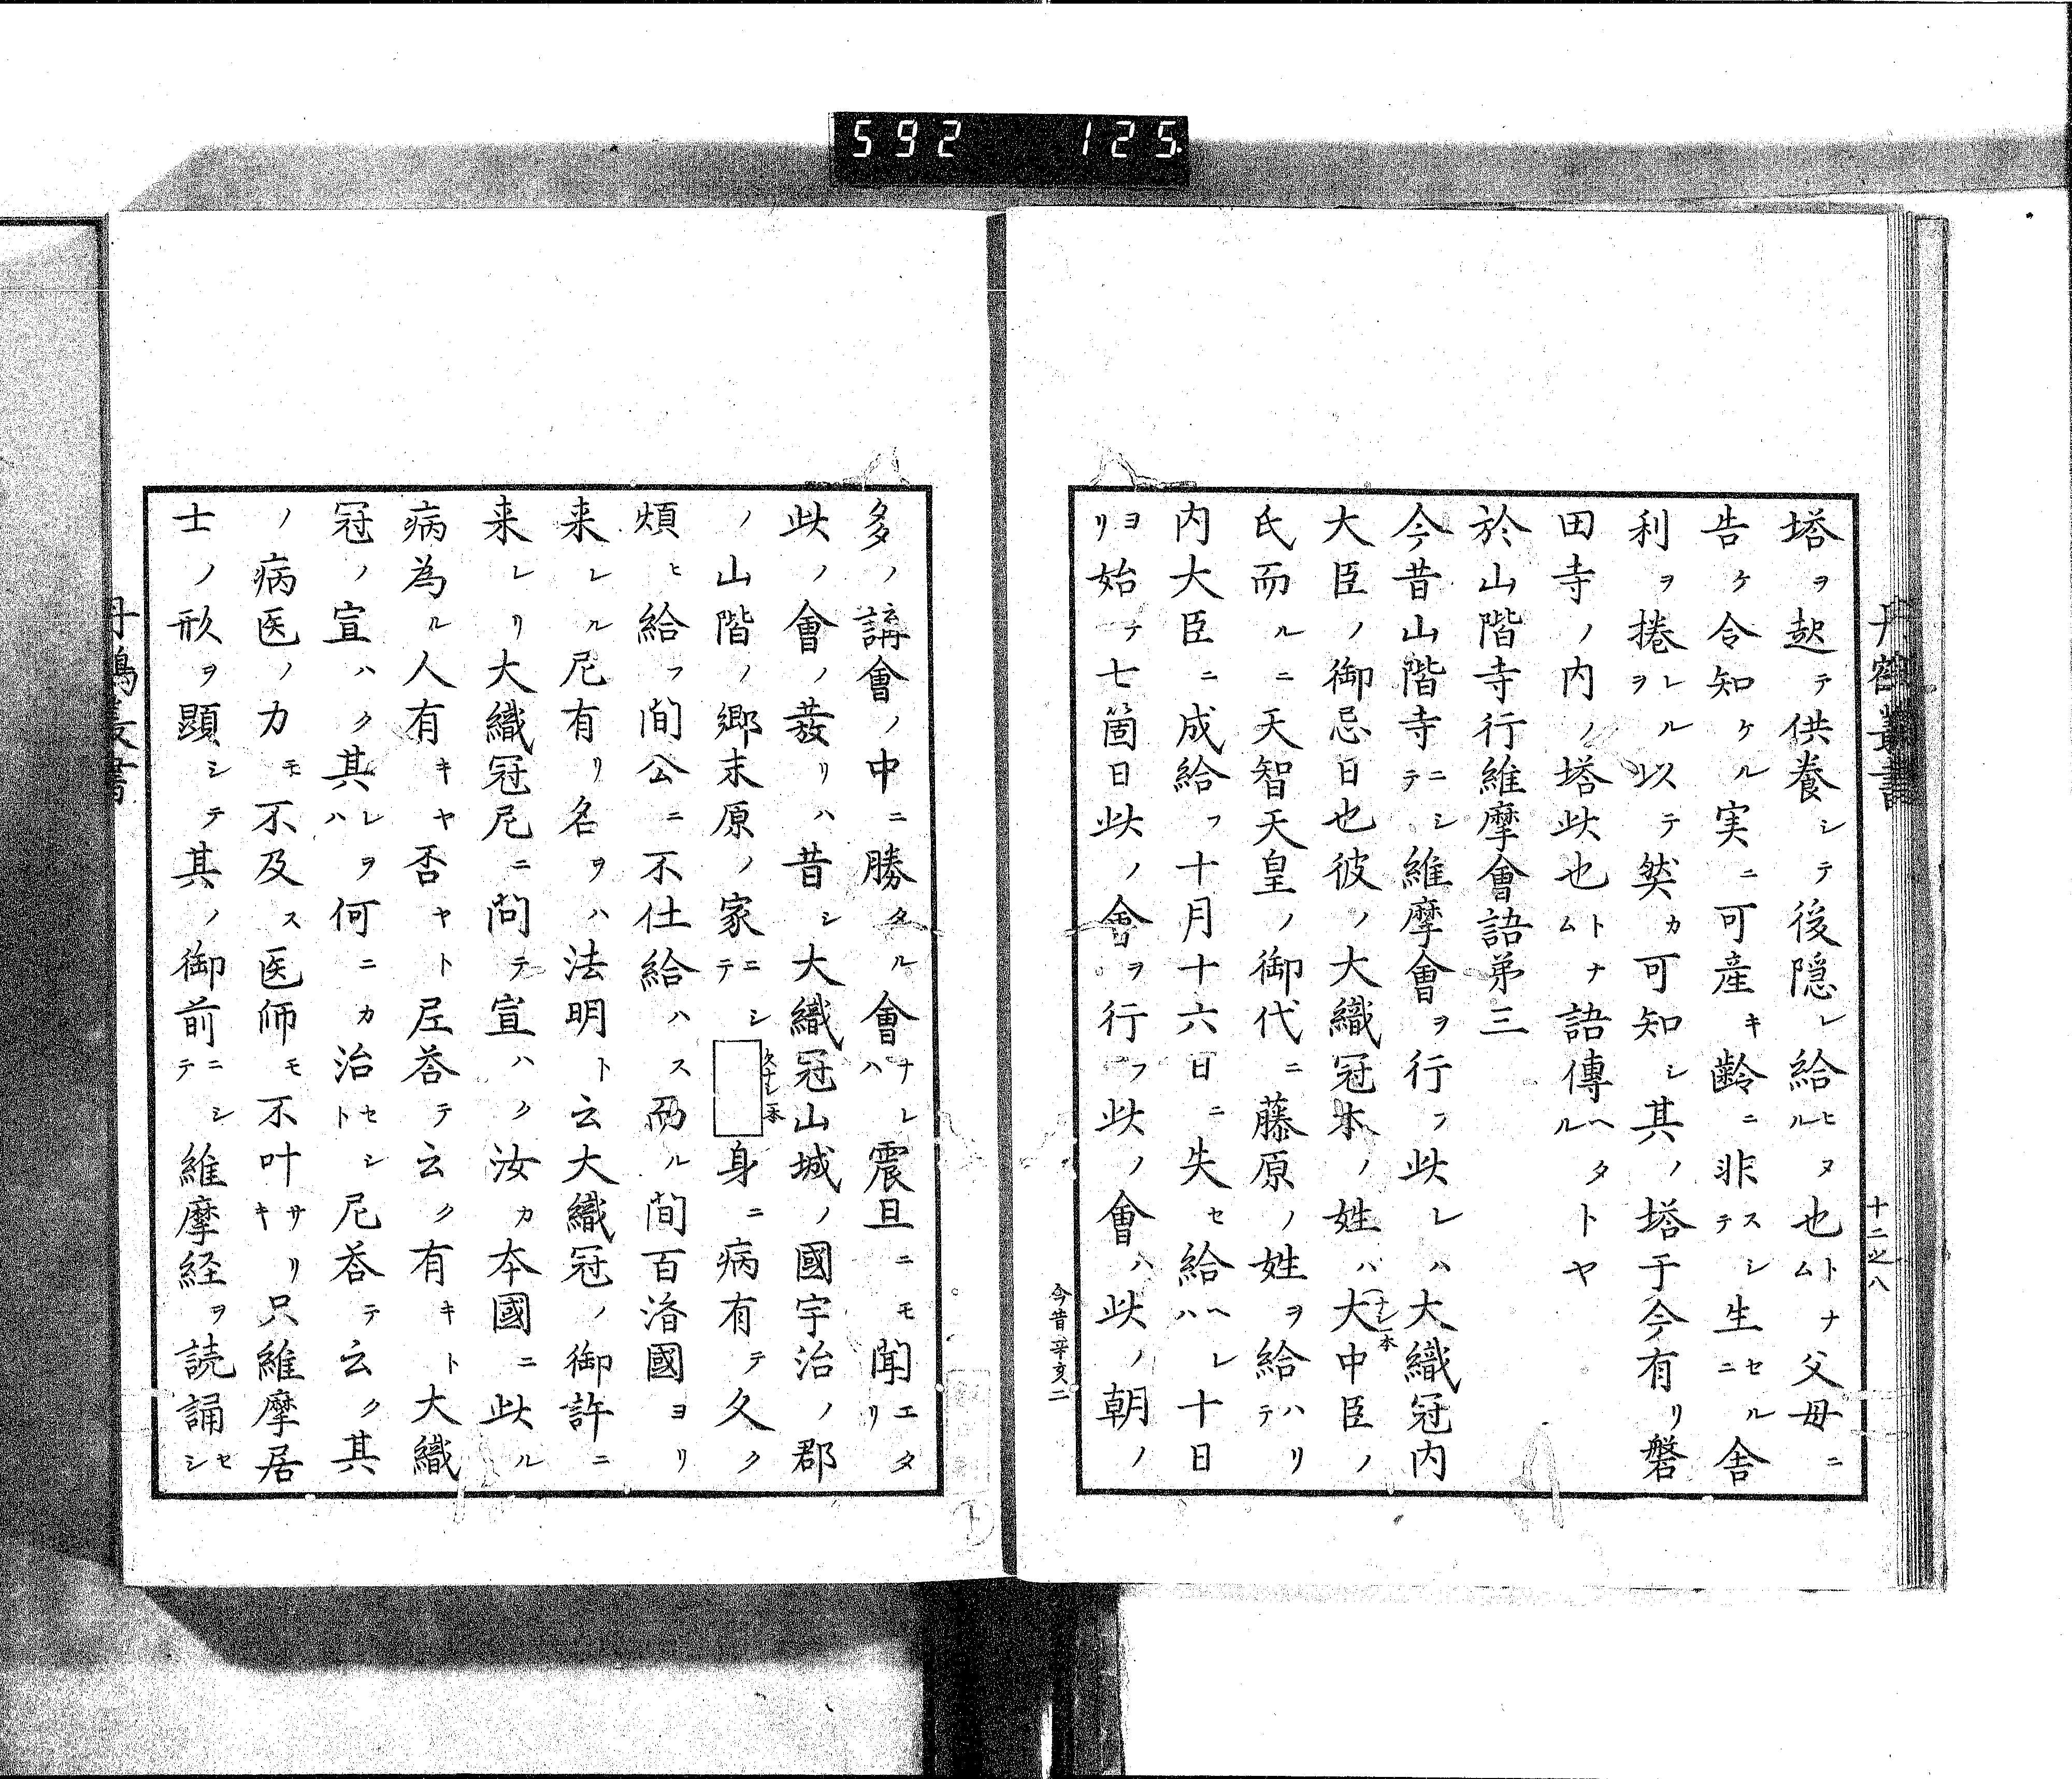 592 125
丹鶴叢書
十二之八
塔ヲ起テ供養シテ後隠レ給ヒヌル也トナム父母ニ
告ケ令知ケル実ニ可産キ齢ニ非スシテ生セルニ舎
利ヲ捲レルヲ以テ然カ可知シ其ノ塔于今有リ磐
田寺ノ内ノ塔此也トナム語傳ヘタルトヤ
於山階寺行維摩會語第三
今昔山階寺ニシテ維摩會ヲ行フ此レハ大織冠内
大臣ノ御忌日也彼ノ大織冠本ノ姓ハ大中臣ノ
ナシ一本
氏而ルニ天智天皇ノ御代ニ藤原ノ姓ヲ給ハリテ
内大臣ニ成給フ十月十六日ニ失セ給ヘレハ十日
ヨリ始テ七箇日此ノ會ヲ行フ此ノ會ハ此ノ朝ノ
今昔辛亥二
多ノ講會ノ中ニ勝タル會ナレハ震旦ニモ聞エタリ
此ノ會ノ發リハ昔シ大織冠山城ノ國宇治ノ郡
ノ山階ノ郷末原ノ家ニシテ身ニ病有テ久ク
欠ナシ一本
煩ヒ給フ間公ニ不仕給ハス而ル間百済國ヨリ
来レル尼有リ名ヲハ法明ト云大織冠ノ御許ニ
来レリ大織冠尼ニ問テ宣ハク汝カ本國ニ此ル
病為ル人有キヤ否ヤト尼答テ云ク有キト大織
冠ノ宣ハク其レヲハ何ニカ治セシト尼答テ云ク其
ノ病医ノ力モ不及ス医師モ不叶サリキ只維摩居
士ノ形ヲ顕シテ其ノ御前ニシテ維摩経ヲ読誦セシ
丹鶴叢書